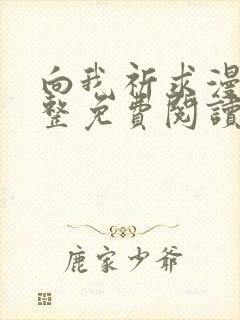 向我祈求漫
整免費閱讀
鹿家少爺